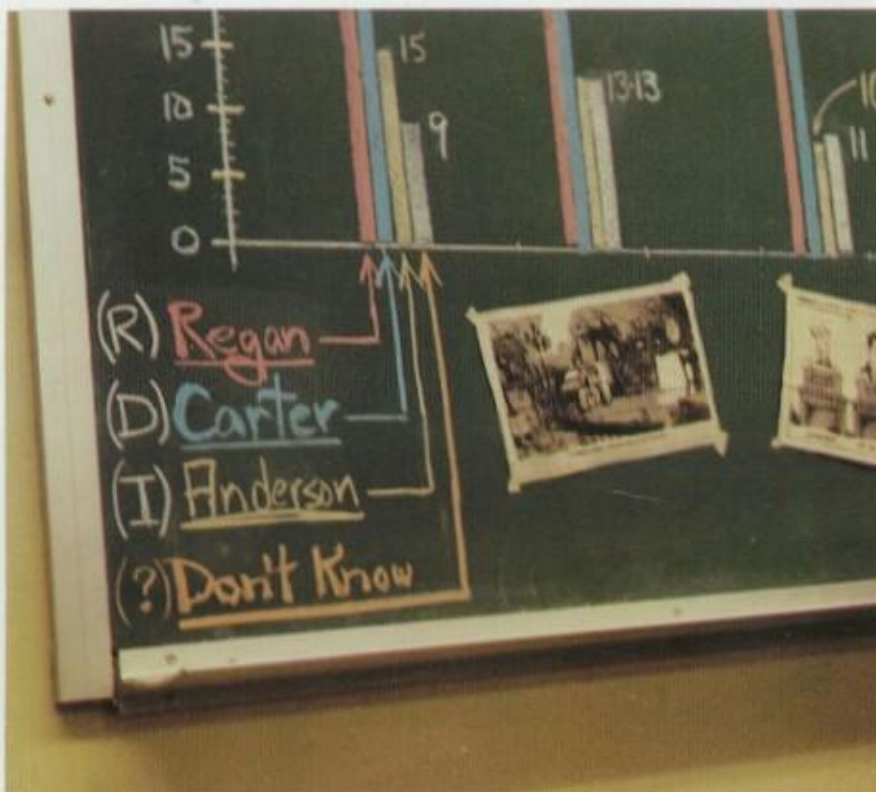 15
15
10
13·13
10
9
11
5
0
(R) Regan
(D) Carter
(I) Anderson
(?) Don't Know